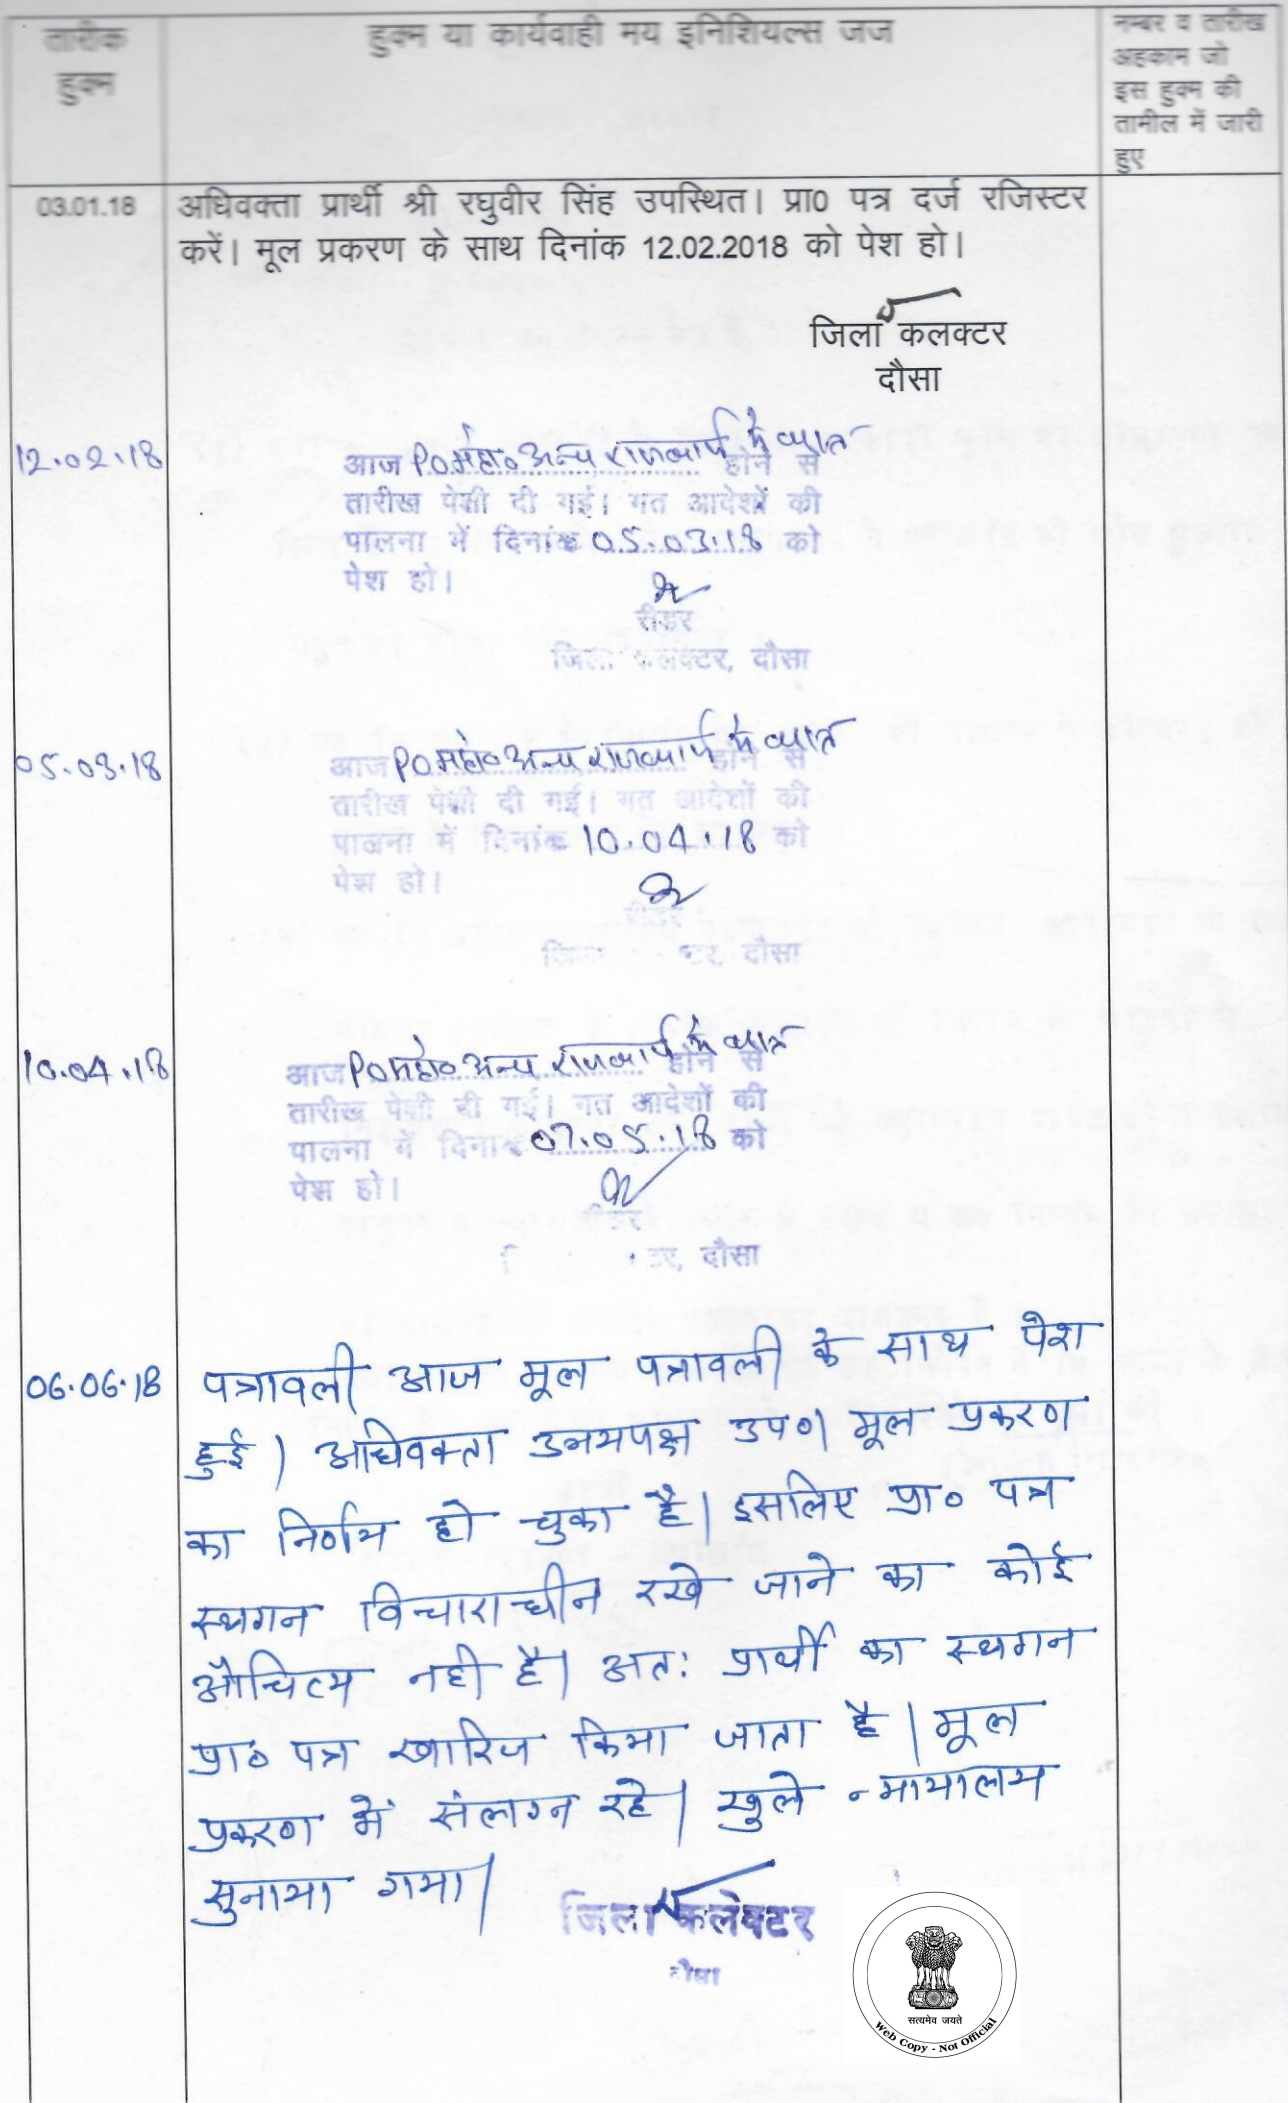 तारीक
हुक्म
हुक्म या कार्यवाही मय इनिशियल्स जज
नम्बर व तारीख
अहकाम जो
इस हुक्म की
तामील में जारी
हुए
03.01.18
अधिवक्ता प्रार्थी श्री रघुवीर सिंह उपस्थित। प्रा0 पत्र दर्ज रजिस्टर
करें। मूल प्रकरण के साथ दिनांक 12.02.2018 को पेश हो।
जिला कलक्टर
दौसा
12.02.18
आज P.O महो० अन्य राजकार्य में व्यस्त होने से
तारीख पेशी दी गई। गत आदेशों की
पालना में दिनांक 05.03.18 को
पेश हो।
रीडर
जिला कलक्टर, दौसा
05.03.18
आज P.O महो० अन्य राजकार्य में व्यस्त होने से
तारीख पेशी दी गई। गत आदेशों की
पालना में दिनांक 10.04.18 को
पेश हो।
रीडर
दौसा
10.04.18
आज P.O महो० अन्य राजकार्य में व्यस्त होने से
तारीख पेशी दी गई। गत आदेशों की
पालना में दिनांक 07.05.18 को
पेश हो।
रीडर
दौसा
06.06.18
पत्रावली आज मूल पत्रावली के साथ पेश
हुई। अधिवक्ता उभयपक्ष उप०। मूल प्रकरण
का निर्णय हो चुका है। इसलिए प्रा० पत्र
स्थगन विचाराधीन रखे जाने का कोई
औचित्य नही है। अतः प्रार्थी का स्थगन
प्रा० पत्र खारिज किया जाता है। मूल
प्रकरण में संलग्न रहे। खुले न्यायालय
सुनाया गया।
जिला कलेक्टर
दौसा
सत्यमेव जयते
Web Copy - Not Official